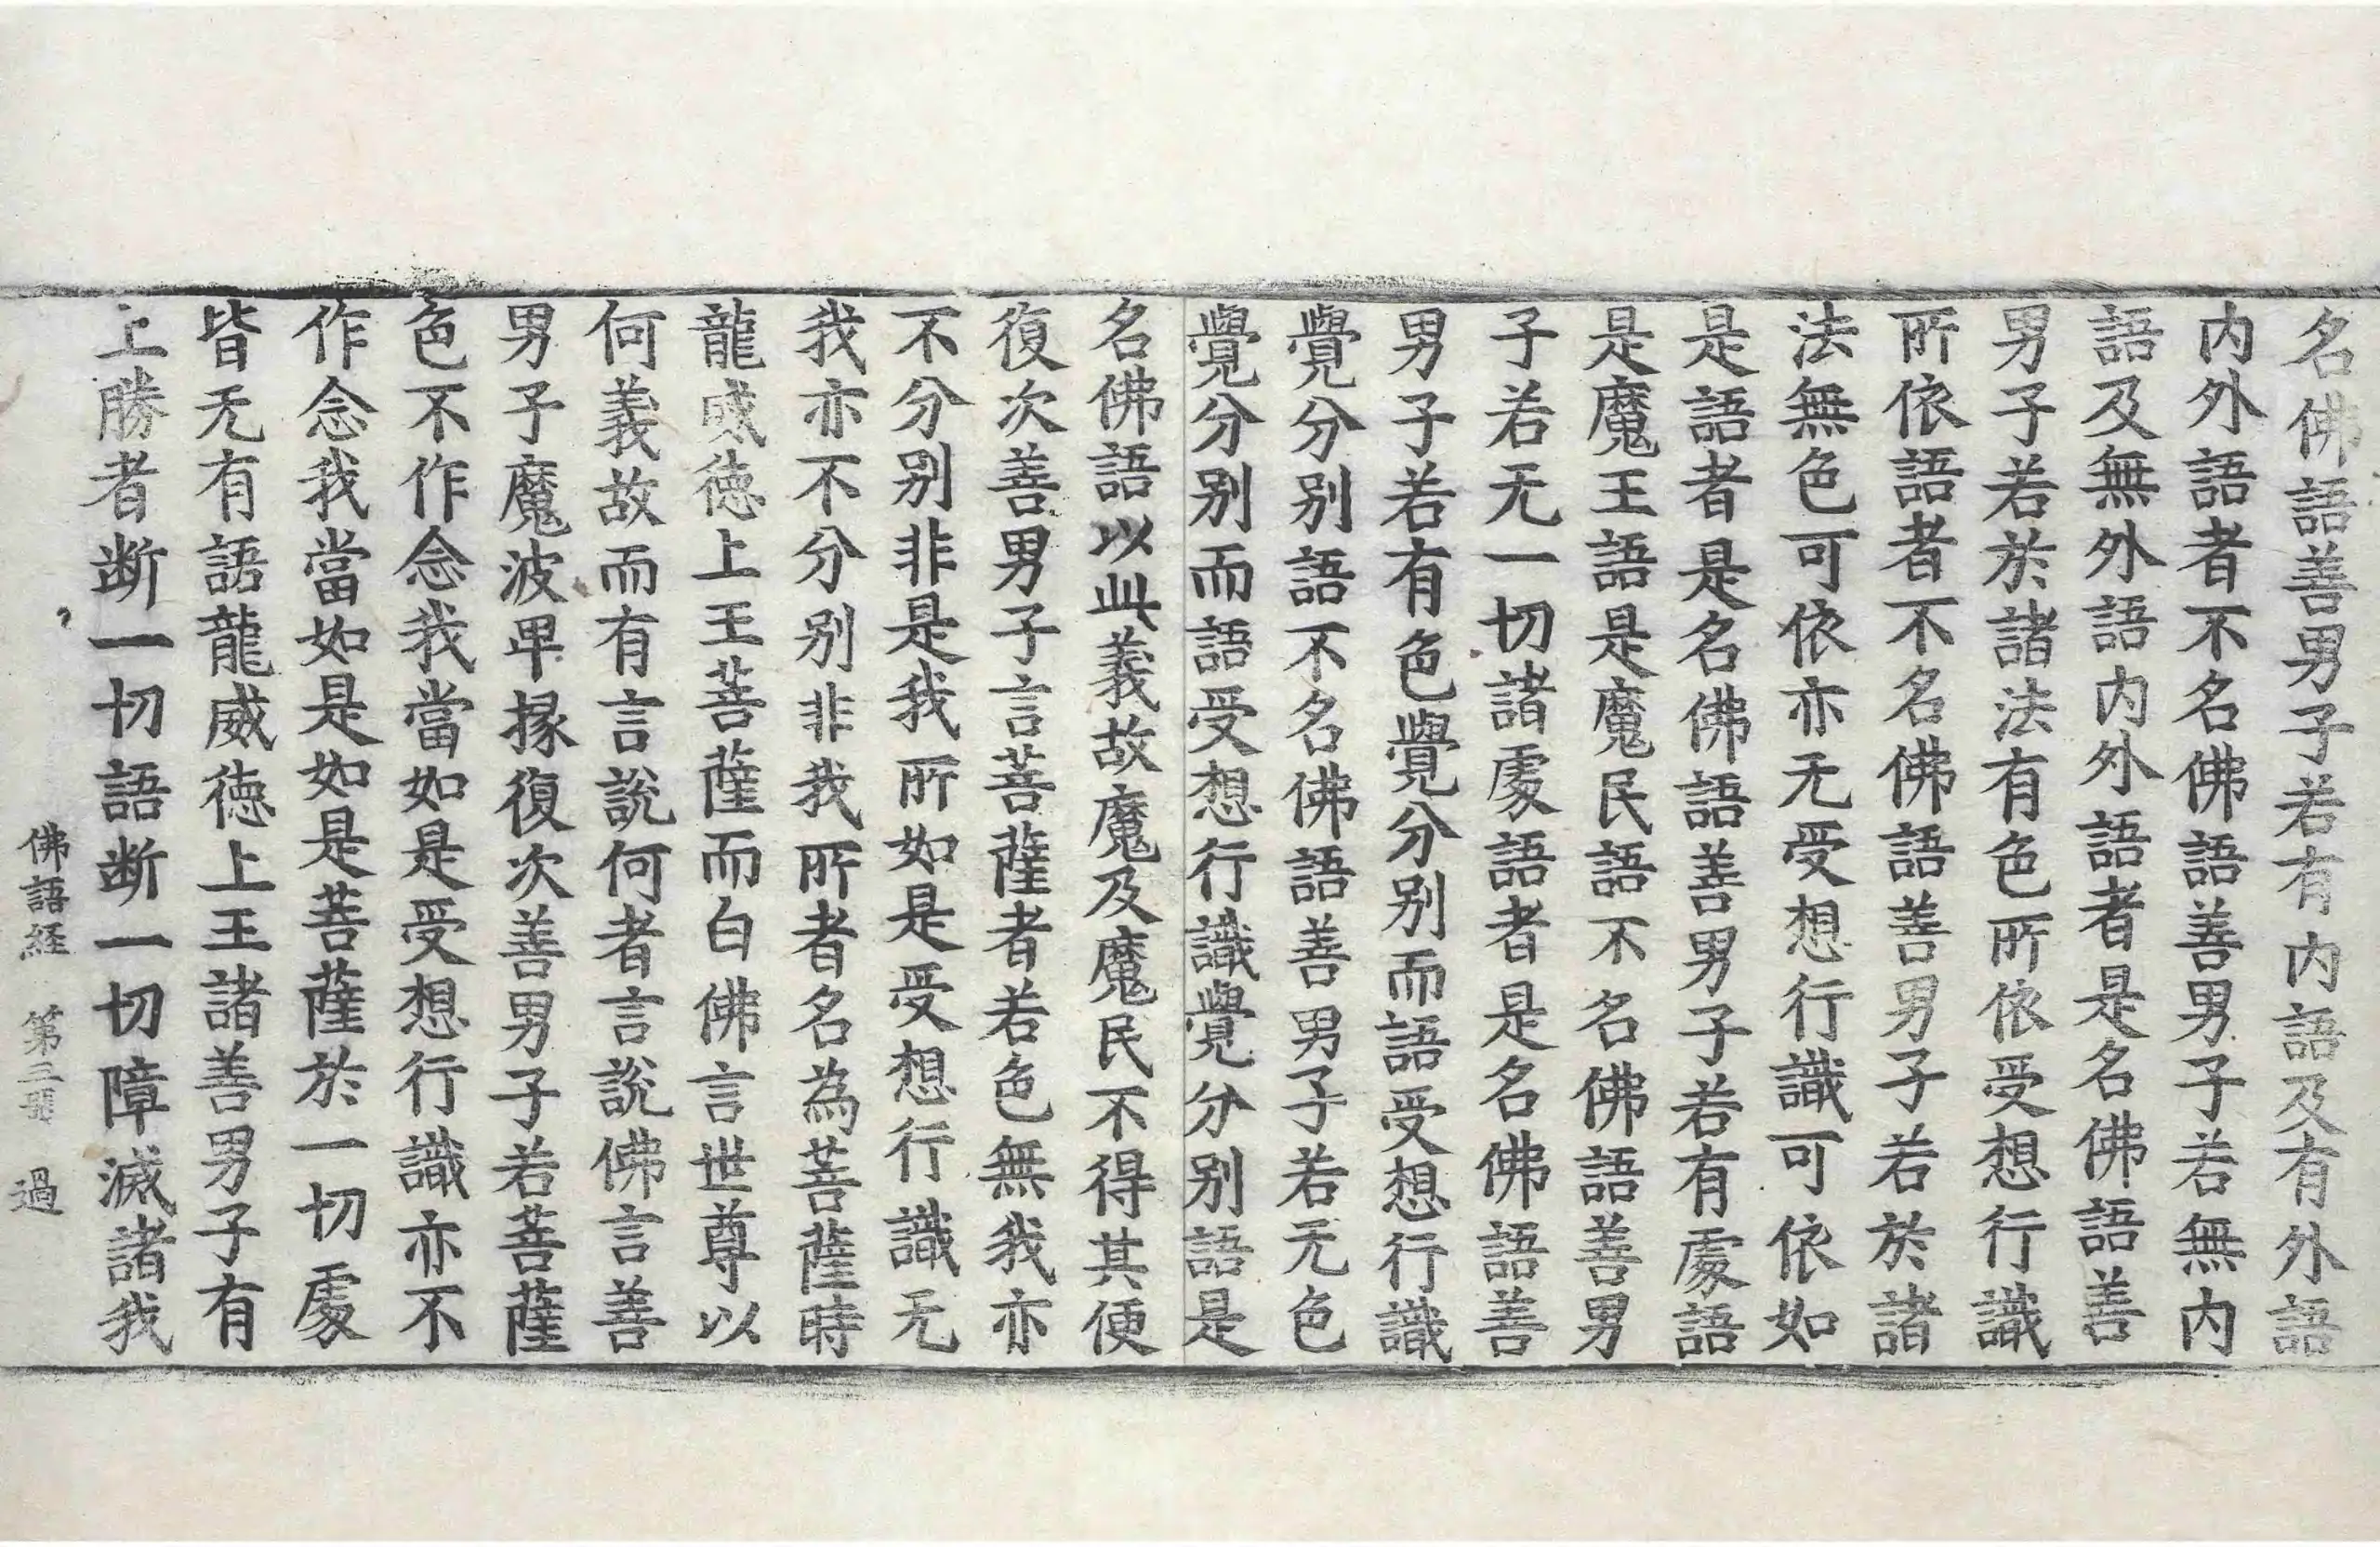 名佛語善男子若有内語及有外語
内外語者不名佛語善男子若無内
語及無外語内外語者是名佛語善
男子若於諸法有色所依受想行識
所依語者不名佛語善男子若於諸
法無色可依亦无受想行識可依如
是語者是名佛語善男子若有處語
是魔王語是魔民語不名佛語善男
子若无一切諸處語者是名佛語善
男子若有色覺分别而語受想行識
覺分别語不名佛語善男子若无色
覺分别而語受想行識覺分别語是
名佛語以此義故魔及魔民不得其便
復次善男子言菩薩者若色無我亦
不分别非是我所如是受想行識无
我亦不分别非我所者名為菩薩時
龍威徳上王菩薩而白佛言世尊以
何義故而有言說何者言說佛言善
男子魔波卑掾復次善男子若菩薩
色不作念我當如是受想行識亦不
作念我當如是如是菩薩於一切處
皆无有語龍威徳上王諸善男子有
上勝者断一切語断一切障滅諸我
佛語経 第二張 過